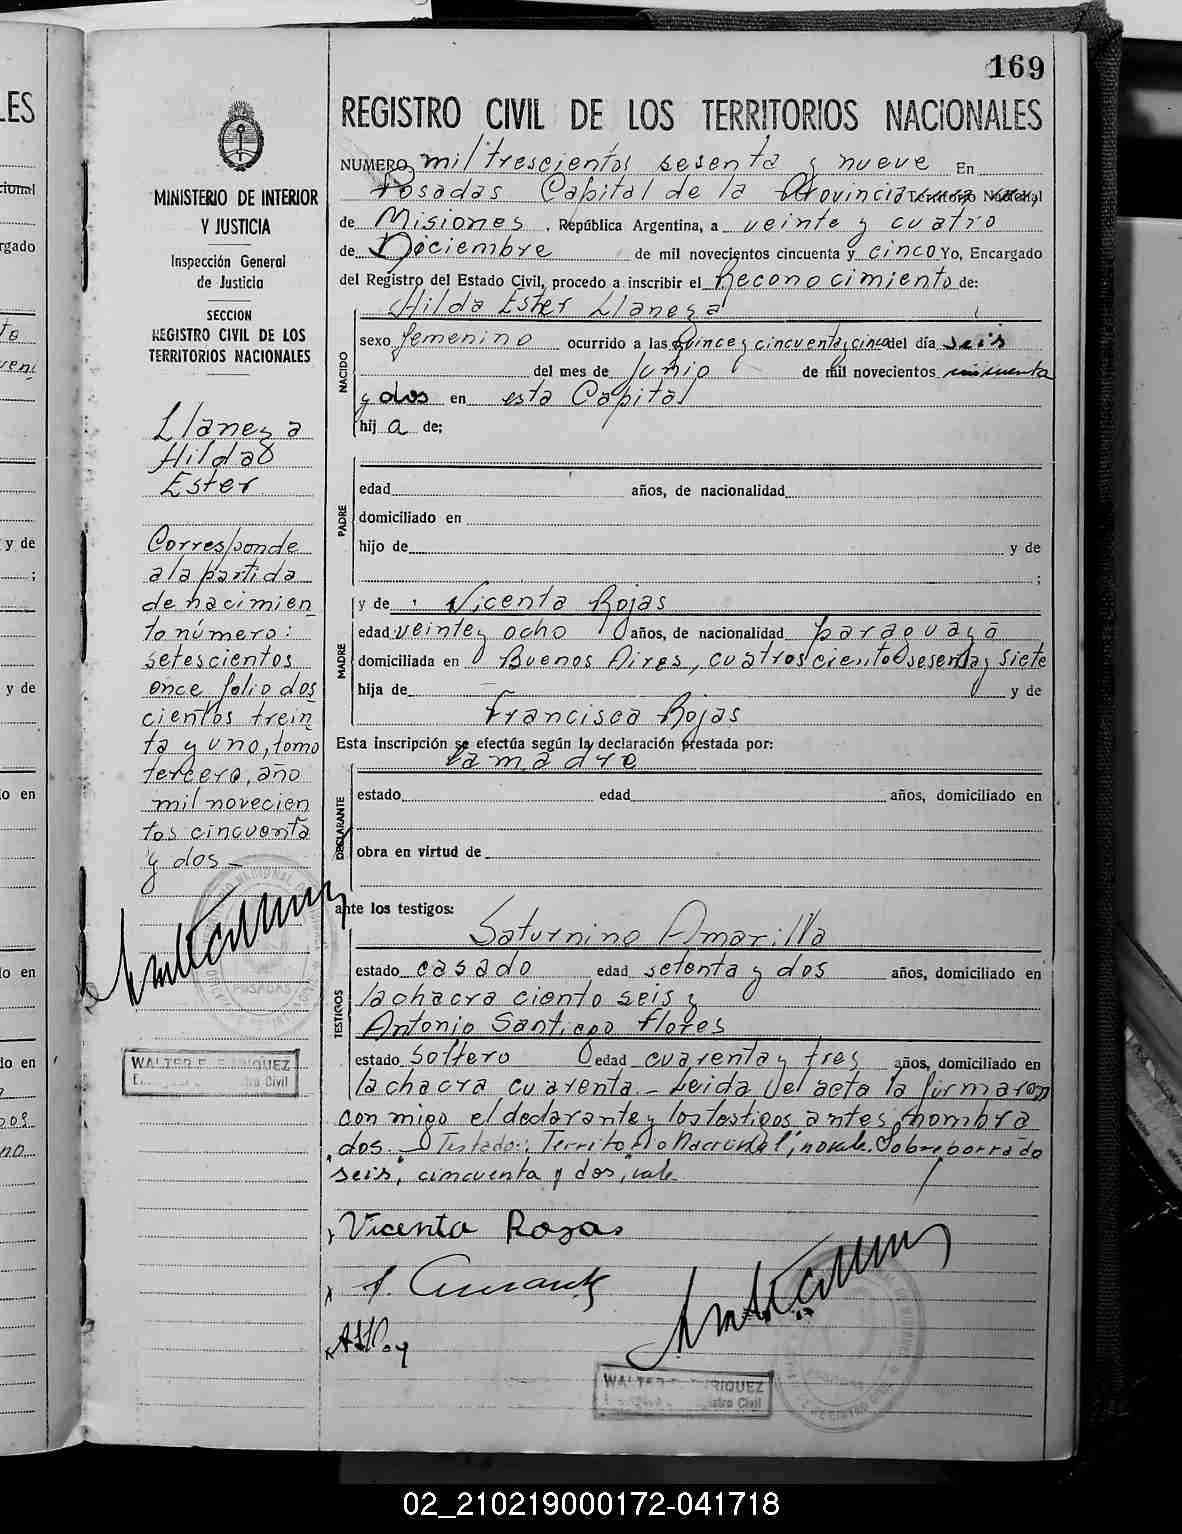 169
REGISTRO CIVIL DE LOS TERRITORIOS NACIONALES
MINISTERIO DE INTERIOR
Y JUSTICIA
Inspección General
de Justicia
SECCION
REGISTRO CIVIL DE LOS
TERRITORIOS NACIONALES
Llaneza
Hilda
Ester
Corresponde
a la partida
de nacimien
to número:
setescientos
once folio dos
cientos trein
ta y uno, tomo
tercero, año
mil novecien
tos cincuenta
y dos
POSADAS
WALTER E. ENRIQUEZ
NUMERO mil trescientos sesenta y nueve En
Posadas Capital de la Provincia Territorio Nacional
de Misiones, República Argentina, a veinte y cuatro
de Diciembre de mil novecientos cincuenta y cinco Yo, Encargado
del Registro del Estado Civil, procedo a inscribir el Reconocimiento de:
Hilda Ester Llaneza
NACIDO
sexo femenino ocurrido a las quince y cincuenta y cinco del día seis
del mes de Junio de mil novecientos cincuenta
y dos en esta Capital
hija de;
PADRE
edad años, de nacionalidad
domiciliado en
hijo de y de
;
MADRE
y de Vicenta Rojas
edad veinte y ocho años, de nacionalidad paraguaya
domiciliada en Buenos Aires, cuatroscientos sesenta y siete
hija de y de
Francisca Rojas
Esta inscripción se efectúa según la declaración prestada por:
la madre
DECLARANTE
estado edad años, domiciliado en
obra en virtud de
ante los testigos:
TESTIGOS
Saturnino Amarilla
estado casado edad setenta y dos años, domiciliado en
la chacra ciento seis y
Antonio Santiago Flores
estado Soltero edad cuarenta y tres años, domiciliado en
la chacra cuarenta - Leida el acta la firmaron
conmigo el declarante y los testigos antes nombra
dos. Testado: "Territorio Nacional", no vale. Sobreborrado
seis, cincuenta y dos, vale.
Vicenta Rojas
WALTER E. ENRIQUEZ
02_210219000172-041718